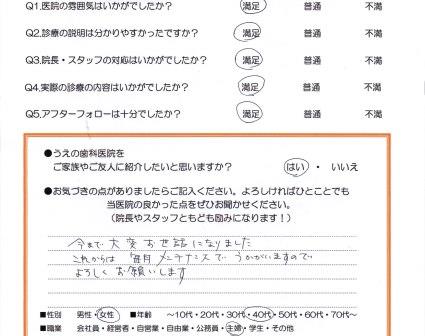 Q1.医院の雰囲気はいかがでしたか？ 満足 普通 不満
Q2.診療の説明は分かりやすかったですか？ 満足 普通 不満
Q3.院長・スタッフの対応はいかがでしたか？ 満足 普通 不満
Q4.実際の診療の内容はいかがでしたか？ 満足 普通 不満
Q5.アフターフォローは十分でしたか？ 満足 普通 不満
●うえの歯科医院を
ご家族やご友人に紹介したいと思いますか？ はい ・ いいえ
●お気づきの点がありましたらご記入ください。よろしければひとことでも
当医院の良かった点をぜひお聞かせください。
(院長やスタッフともども励みになります！)
今まで大変お世話になりました
これからは 毎月 メンテナンスで うかがいますので
よろしくお願いします
■性別 男性・女性 ■年齢 ～10代・20代・30代・40代・50代・60代・70代～
■職業 会社員・経営者・自営業・自由業・公務員・主婦・学生・その他